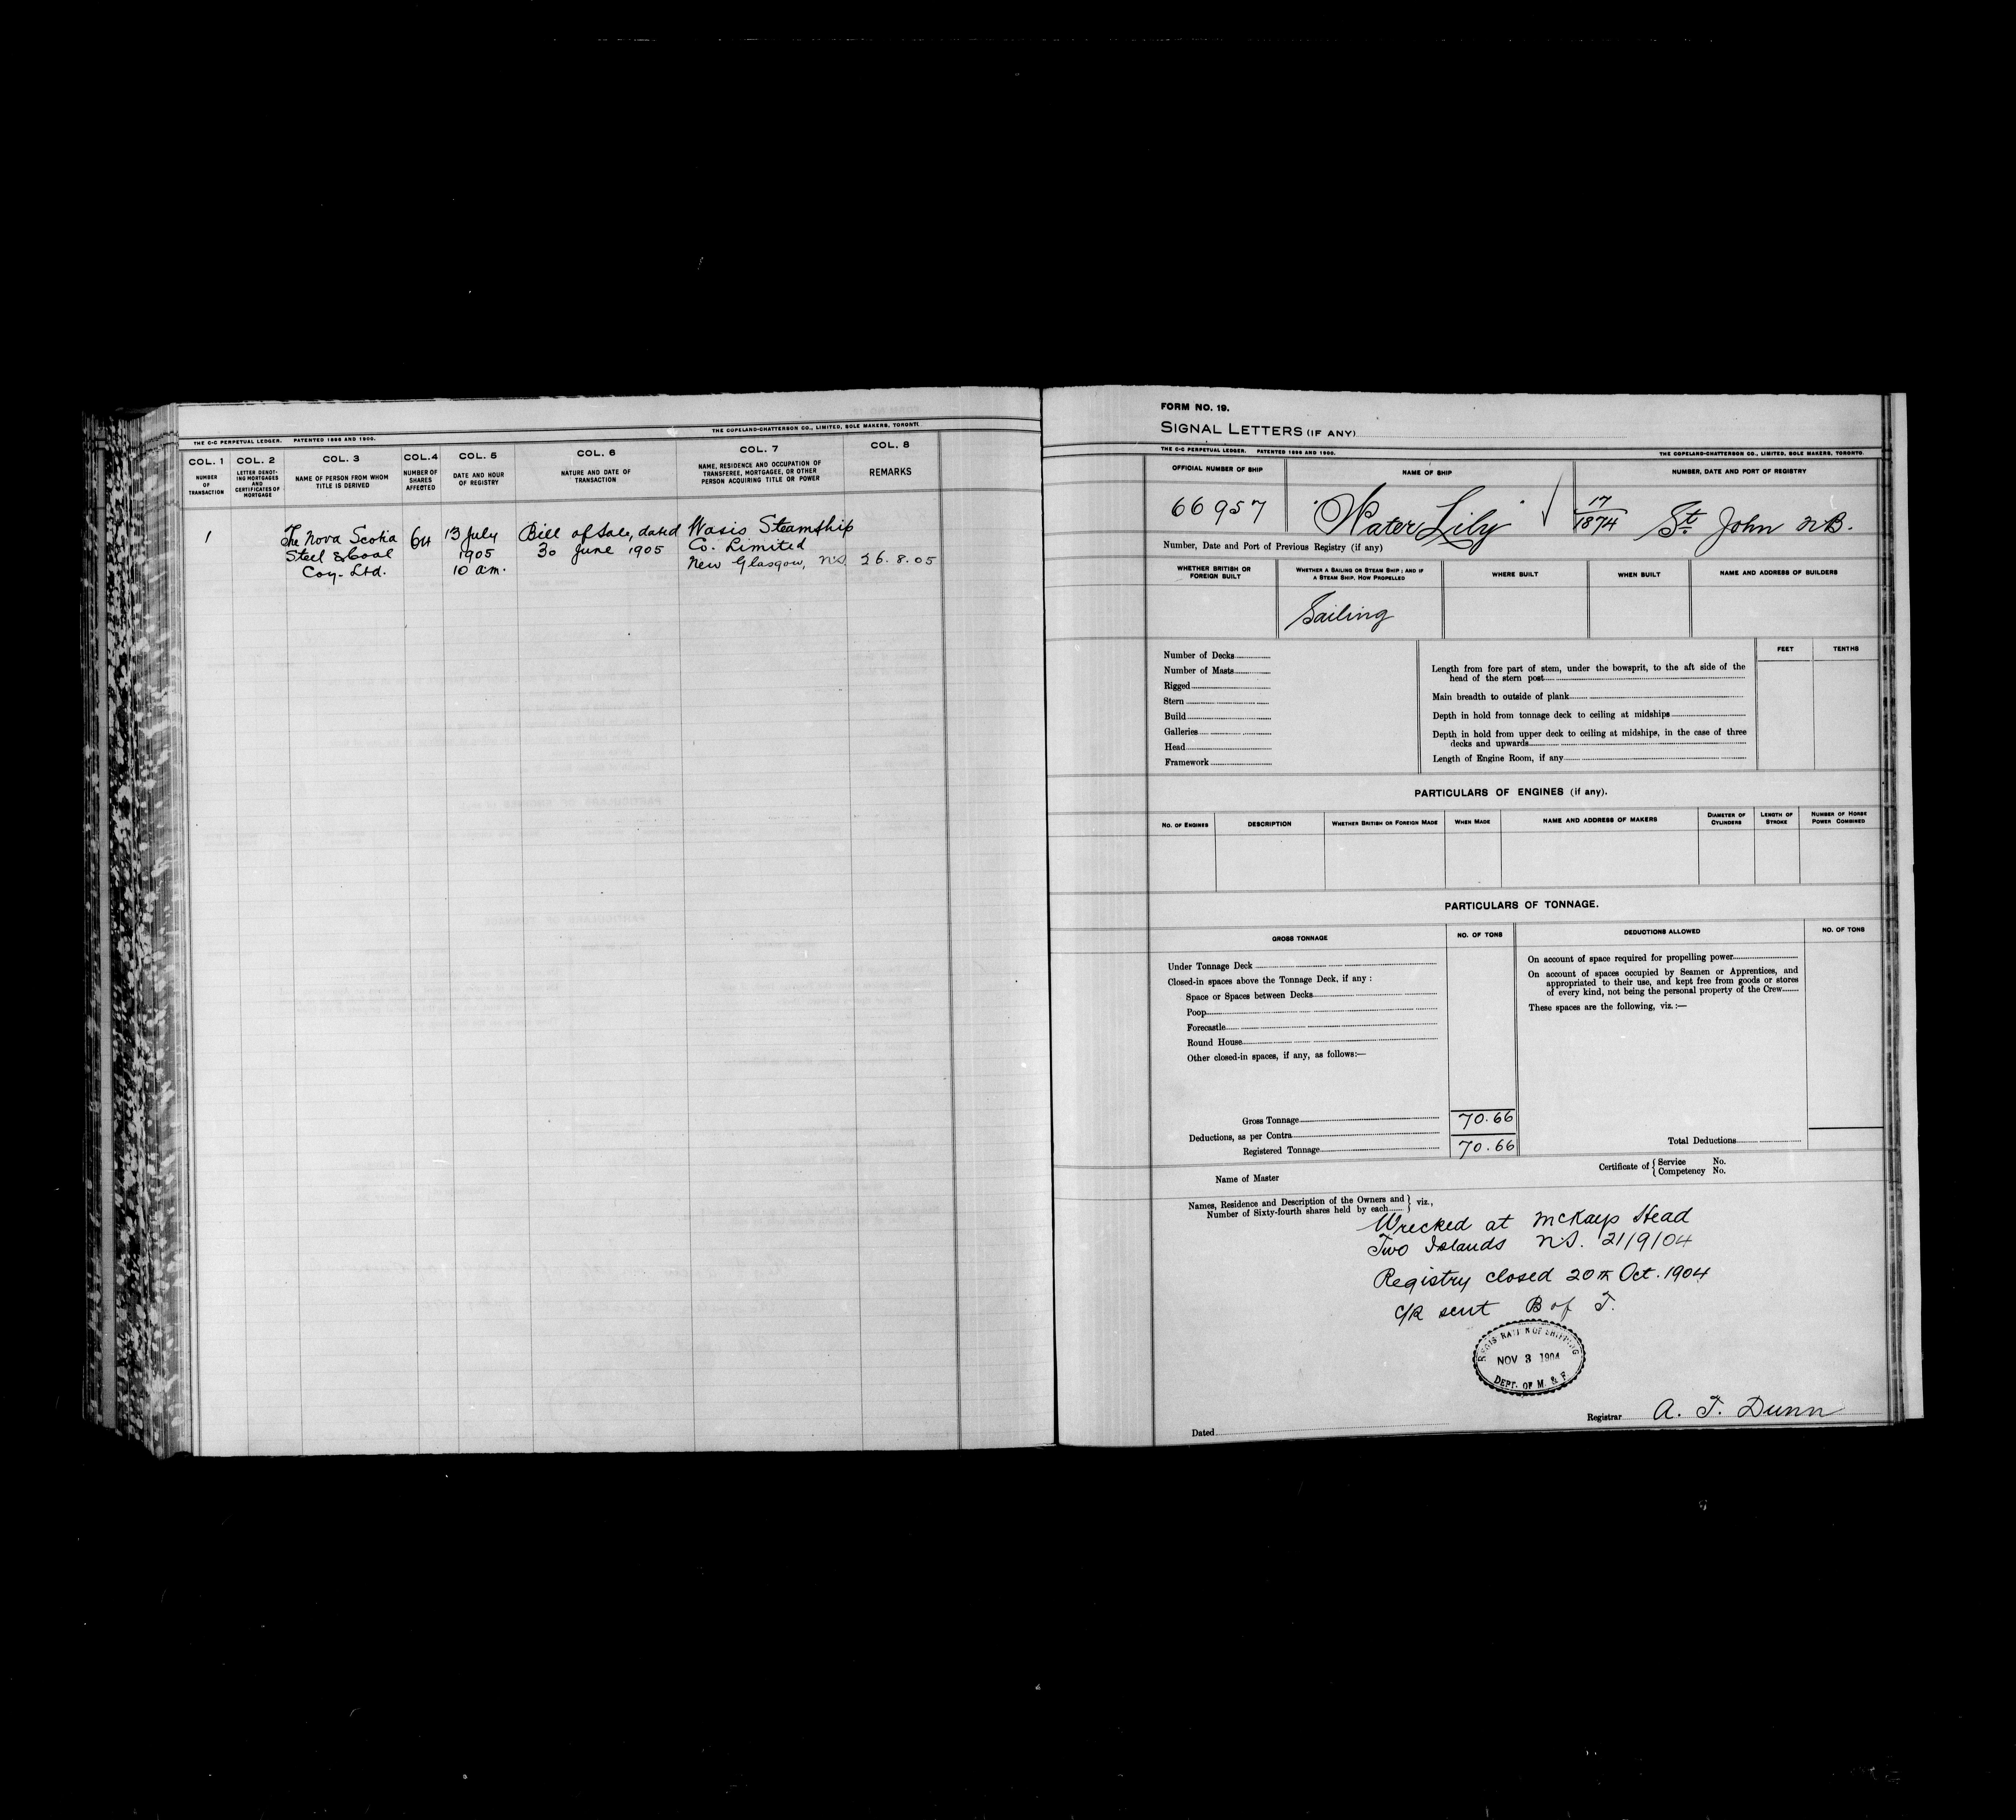 THE C-C PERPETUAL LEDGER. PATENTED 1896 AND 1900. THE COPELAND-CHATTERSON CO., LIMITED, SOLE MAKERS, TORONTO.
COL. 1 COL. 2 COL. 3 COL. 4 COL. 5 COL. 6 COL. 7 COL. 8
NUMBER OF TRANSACTION
LETTER DENOT-ING MORTGAGES AND CERTIFICATES OF MORTGAGE
NAME OF PERSON FROM WHOM TITLE IS DERIVED
NUMBER OF SHARES AFFECTED
DATE AND HOUR OF REGISTRY
NATURE AND DATE OF TRANSACTION
NAME, RESIDENCE AND OCCUPATION OF TRANSFEREE, MORTGAGEE, OR OTHER PERSON ACQUIRING TITLE OR POWER
REMARKS
1 The Nova Scotia 64 13 July Bill of Sale, dated Wasis Steamship
Steel & Coal 1905 30 June 1905 Co. Limited
Coy. Ltd. 10 a.m. New Glasgow, N.S. 26.8.05
FORM NO. 19.
SIGNAL LETTERS (IF ANY)
THE C-C PERPETUAL LEDGER. PATENTED 1896 AND 1900. THE COPELAND-CHATTERSON CO., LIMITED, SOLE MAKERS, TORONTO.
OFFICIAL NUMBER OF SHIP NAME OF SHIP NUMBER, DATE AND PORT OF REGISTRY
66957 "Water Lily" 17/1874 St. John N.B.
Number, Date and Port of Previous Registry (if any)
WHETHER BRITISH OR FOREIGN BUILT
WHETHER A SAILING OR STEAM SHIP; AND IF A STEAM SHIP, HOW PROPELLED
WHERE BUILT
WHEN BUILT
NAME AND ADDRESS OF BUILDERS
Sailing
Number of Decks
Number of Masts
Rigged
Stern
Build
Galleries
Head
Framework
FEET TENTHS
Length from fore part of stem, under the bowsprit, to the aft side of the
head of the stern post
Main breadth to outside of plank
Depth in hold from tonnage deck to ceiling at midships
Depth in hold from upper deck to ceiling at midships, in the case of three
decks and upwards
Length of Engine Room, if any
PARTICULARS OF ENGINES (if any).
NO. OF ENGINES DESCRIPTION WHETHER BRITISH OR FOREIGN MADE WHEN MADE NAME AND ADDRESS OF MAKERS DIAMETER OF CYLINDERS LENGTH OF STROKE NUMBER OF HORSE POWER COMBINED
PARTICULARS OF TONNAGE.
GROSS TONNAGE NO. OF TONS DEDUCTIONS ALLOWED NO. OF TONS
Under Tonnage Deck
Closed-in spaces above the Tonnage Deck, if any :
Space or Spaces between Decks
Poop
Forecastle
Round House
Other closed-in spaces, if any, as follows:—
On account of space required for propelling power
On account of spaces occupied by Seamen or Apprentices, and
appropriated to their use, and kept free from goods or stores
of every kind, not being the personal property of the Crew
These spaces are the following, viz.:—
Gross Tonnage 70.66
Deductions, as per Contra
Registered Tonnage 70.66
Total Deductions
Name of Master
Certificate of { Service No.
Competency No.
Names, Residence and Description of the Owners and } viz.,
Number of Sixty-fourth shares held by each
Wrecked at McKays Head
Two Islands N.S. 21/9/04
Registry closed 20th Oct. 1904
C/R sent B of T.
REGISTRATION OF SHIPPING
NOV 3 1904
DEPT. OF M. & F.
Registrar A. T. Dunn
Dated